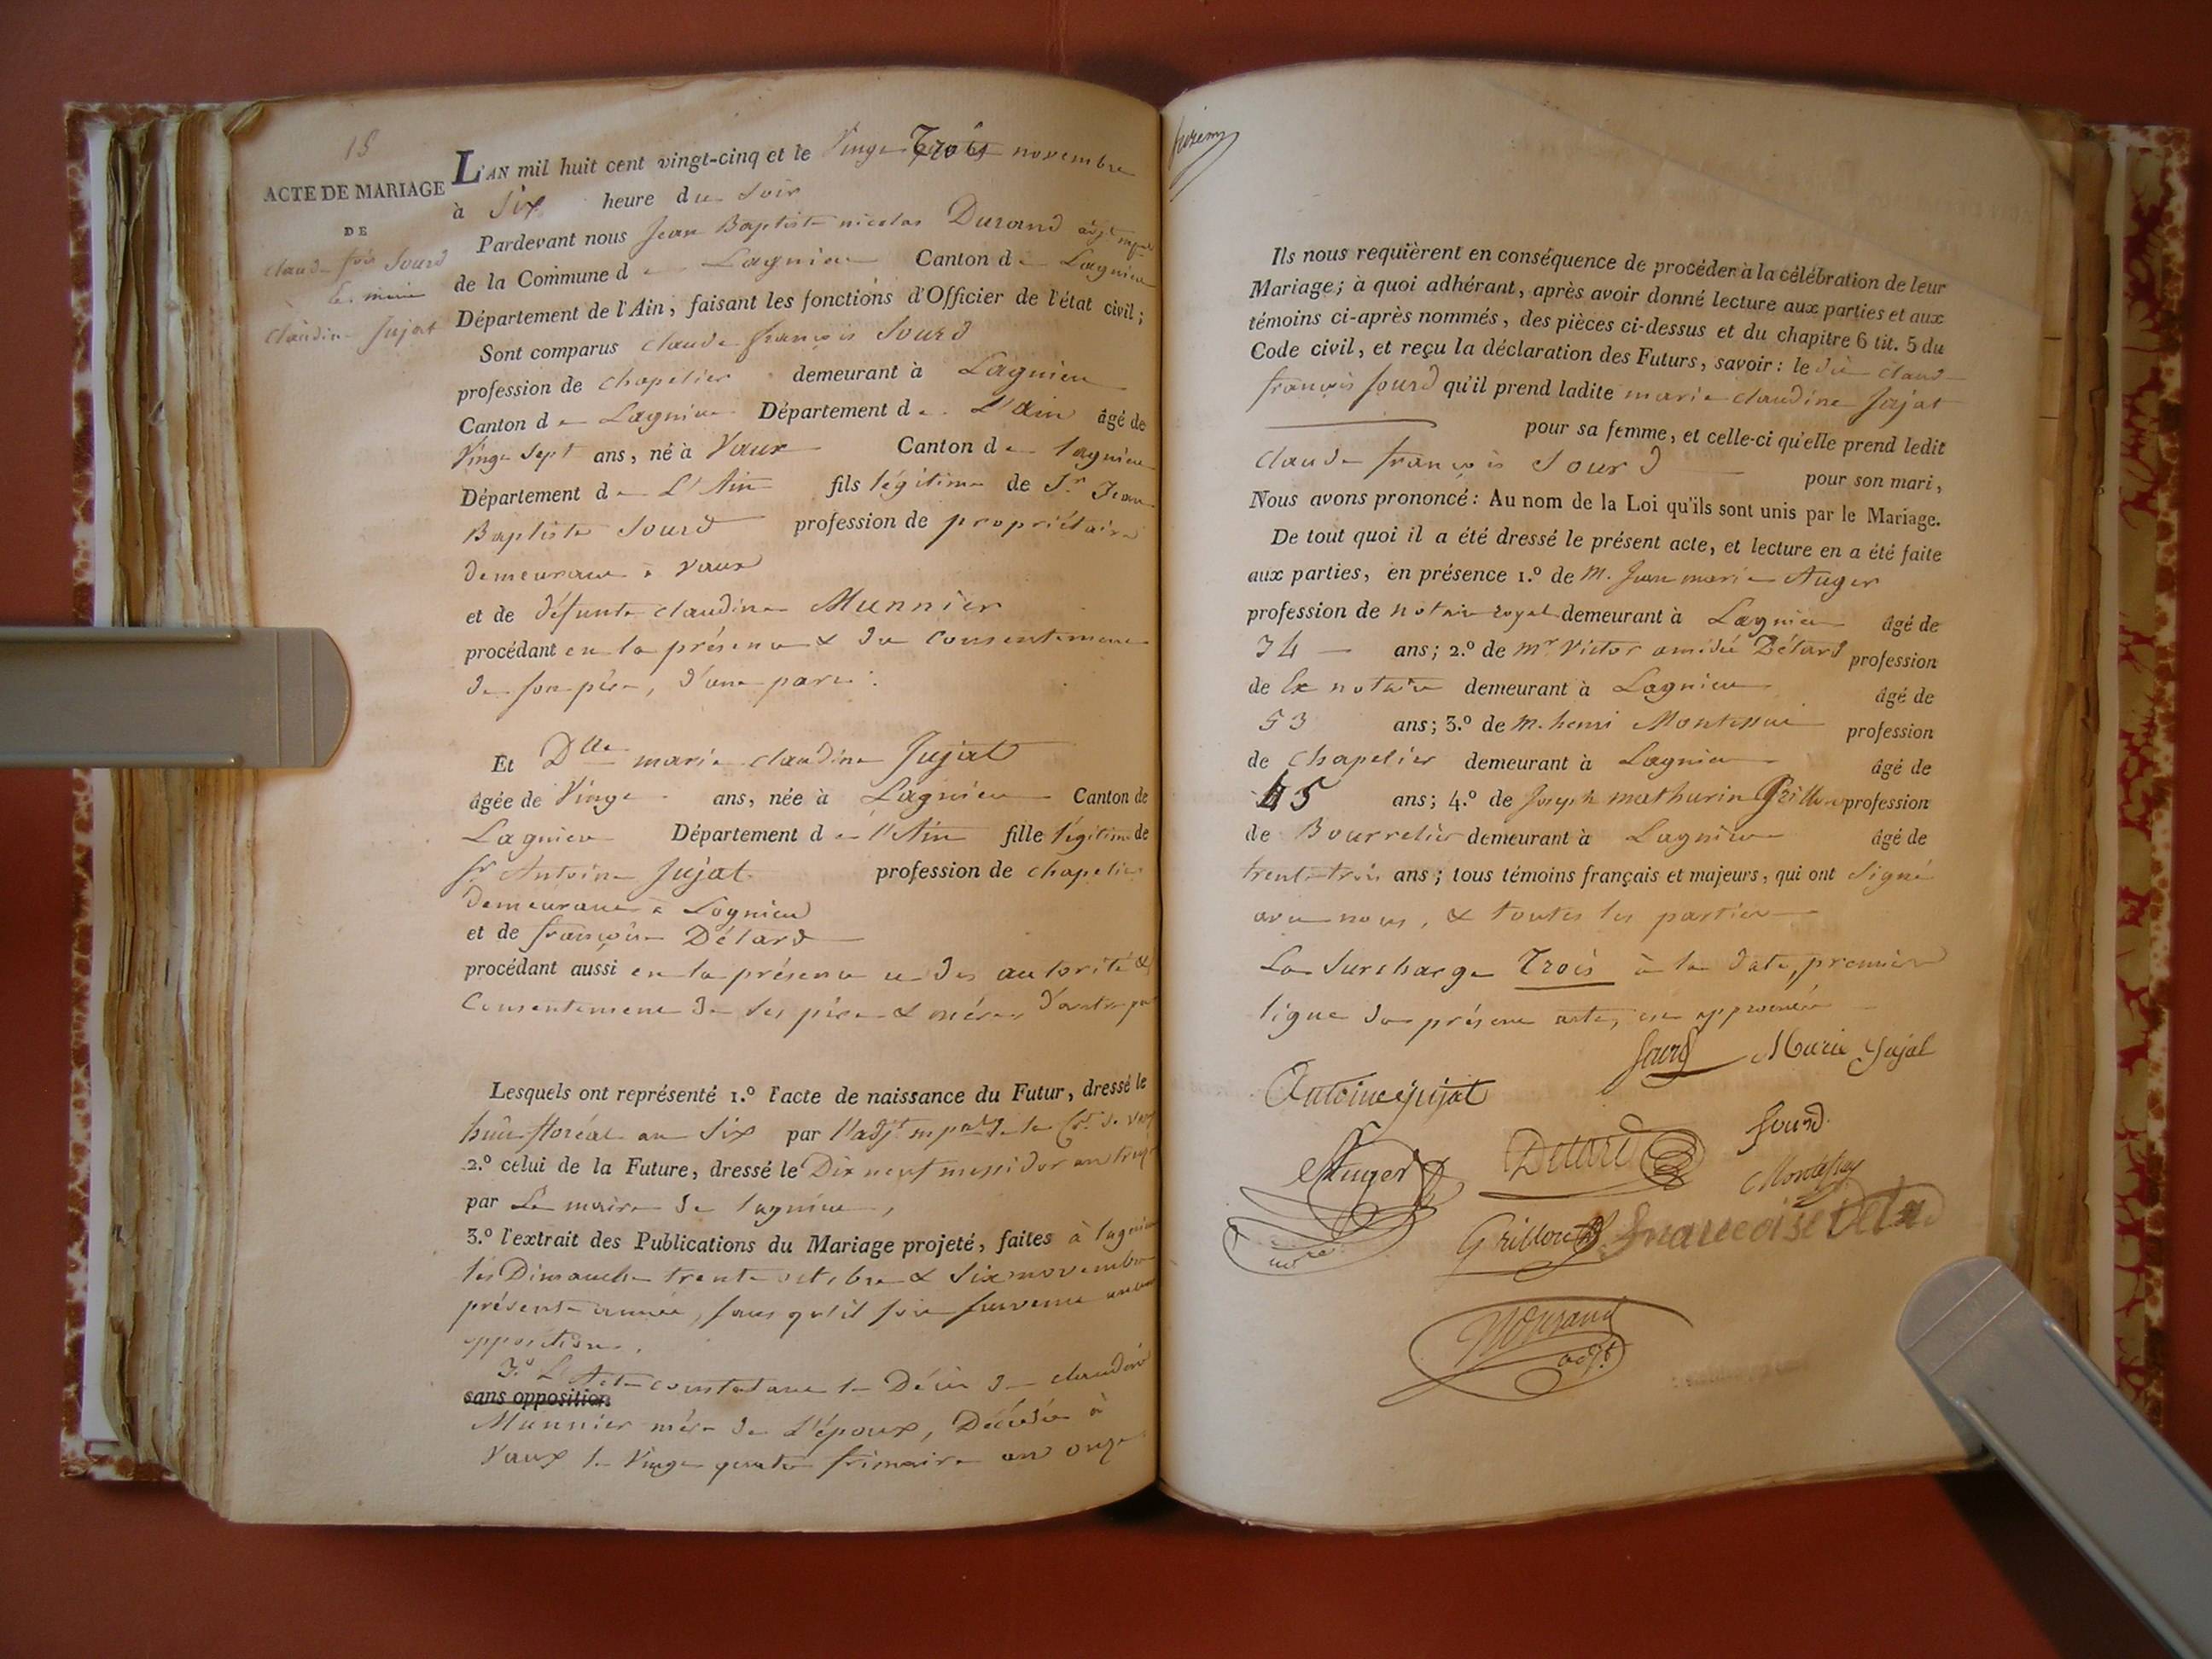 15
ACTE DE MARIAGE
DE
Claude fois Sourd
et marie
Claudine Jujat
L'AN mil huit cent vingt-cinq et le Vingt Trois novembre
à Six heure du Soir
Pardevant nous Jean Baptiste nicolas Durand adjt mpal
de la Commune de Lagnieu Canton de Lagnieu
Département de l'Ain, faisant les fonctions d'Officier de l'état civil;
Sont comparus Claude françois Sourd
profession de Chapelier demeurant à Lagnieu
Canton de Lagnieu Département de L'Ain âgé de
Vingt Sept ans, né à Vaux Canton de Lagnieu
Département de L'Ain fils légitime de Sr Jean
Baptiste Sourd profession de propriétaire
demeurant à Vaux
et de défunte Claudine Munnier
procédant en la présence & du Consentement
de son père, d'une part.
Et Dlle marie Claudine Jujat
âgée de Vingt ans, née à Lagnieu Canton de
Lagnieu Département de l'Ain fille légitime de
Sr Antoine Jujat profession de chapelier
demeurant à Lagnieu
et de françoise Détard
procédant aussi en la présence et des autorité &
Consentement de ses père & mère, d'autre part
Lesquels ont représenté 1.º l'acte de naissance du Futur, dressé le
huit floréal an Six par l'adjt mpal de la Cne de Vaux
2.º celui de la Future, dressé le Dix neuf messidor an treize
par Le maire de Lagnieu,
3.º l'extrait des Publications du Mariage projeté, faites à Lagnieu
les Dimanche trente octobre & Six novembre
présente année, sans qu'il soit survenu aucune
opposition.
3.º L'Acte constatant le Décès de Claudine
sans opposition
Munnier mère de L'époux, Décédée à
Vaux le Vingt quatre frimaire an onze
Ils nous requièrent en conséquence de procéder à la célébration de leur
Mariage; à quoi adhérant, après avoir donné lecture aux parties et aux
témoins ci-après nommés, des pièces ci-dessus et du chapitre 6 tit. 5 du
Code civil, et reçu la déclaration des Futurs, savoir: le dit Claude
françois Sourd qu'il prend ladite marie Claudine Jujat
pour sa femme, et celle-ci qu'elle prend ledit
Claude françois Sourd pour son mari,
Nous avons prononcé: Au nom de la Loi qu'ils sont unis par le Mariage.
De tout quoi il a été dressé le présent acte, et lecture en a été faite
aux parties, en présence 1.º de M. Jean marie Auger
profession de notaire royal demeurant à Lagnieu âgé de
34 ans; 2.º de mr Victor amédée Détard profession
de Ex notaire demeurant à Lagnieu âgé de
53 ans; 3.º de m. henri Montessui profession
de Chapelier demeurant à Lagnieu âgé de
45 ans; 4.º de Joseph mathurin Grillon profession
de Bourrelier demeurant à Lagnieu âgé de
trente trois ans; tous témoins français et majeurs, qui ont Signé
avec nous, & toutes les parties
La Surcharge Trois à la date, première
ligne du présent acte, est approuvée
Sourd Marie Jujat
Antoine jujat
Auger Détard Sourd
Grillon françoise Detard
Durand
adjt